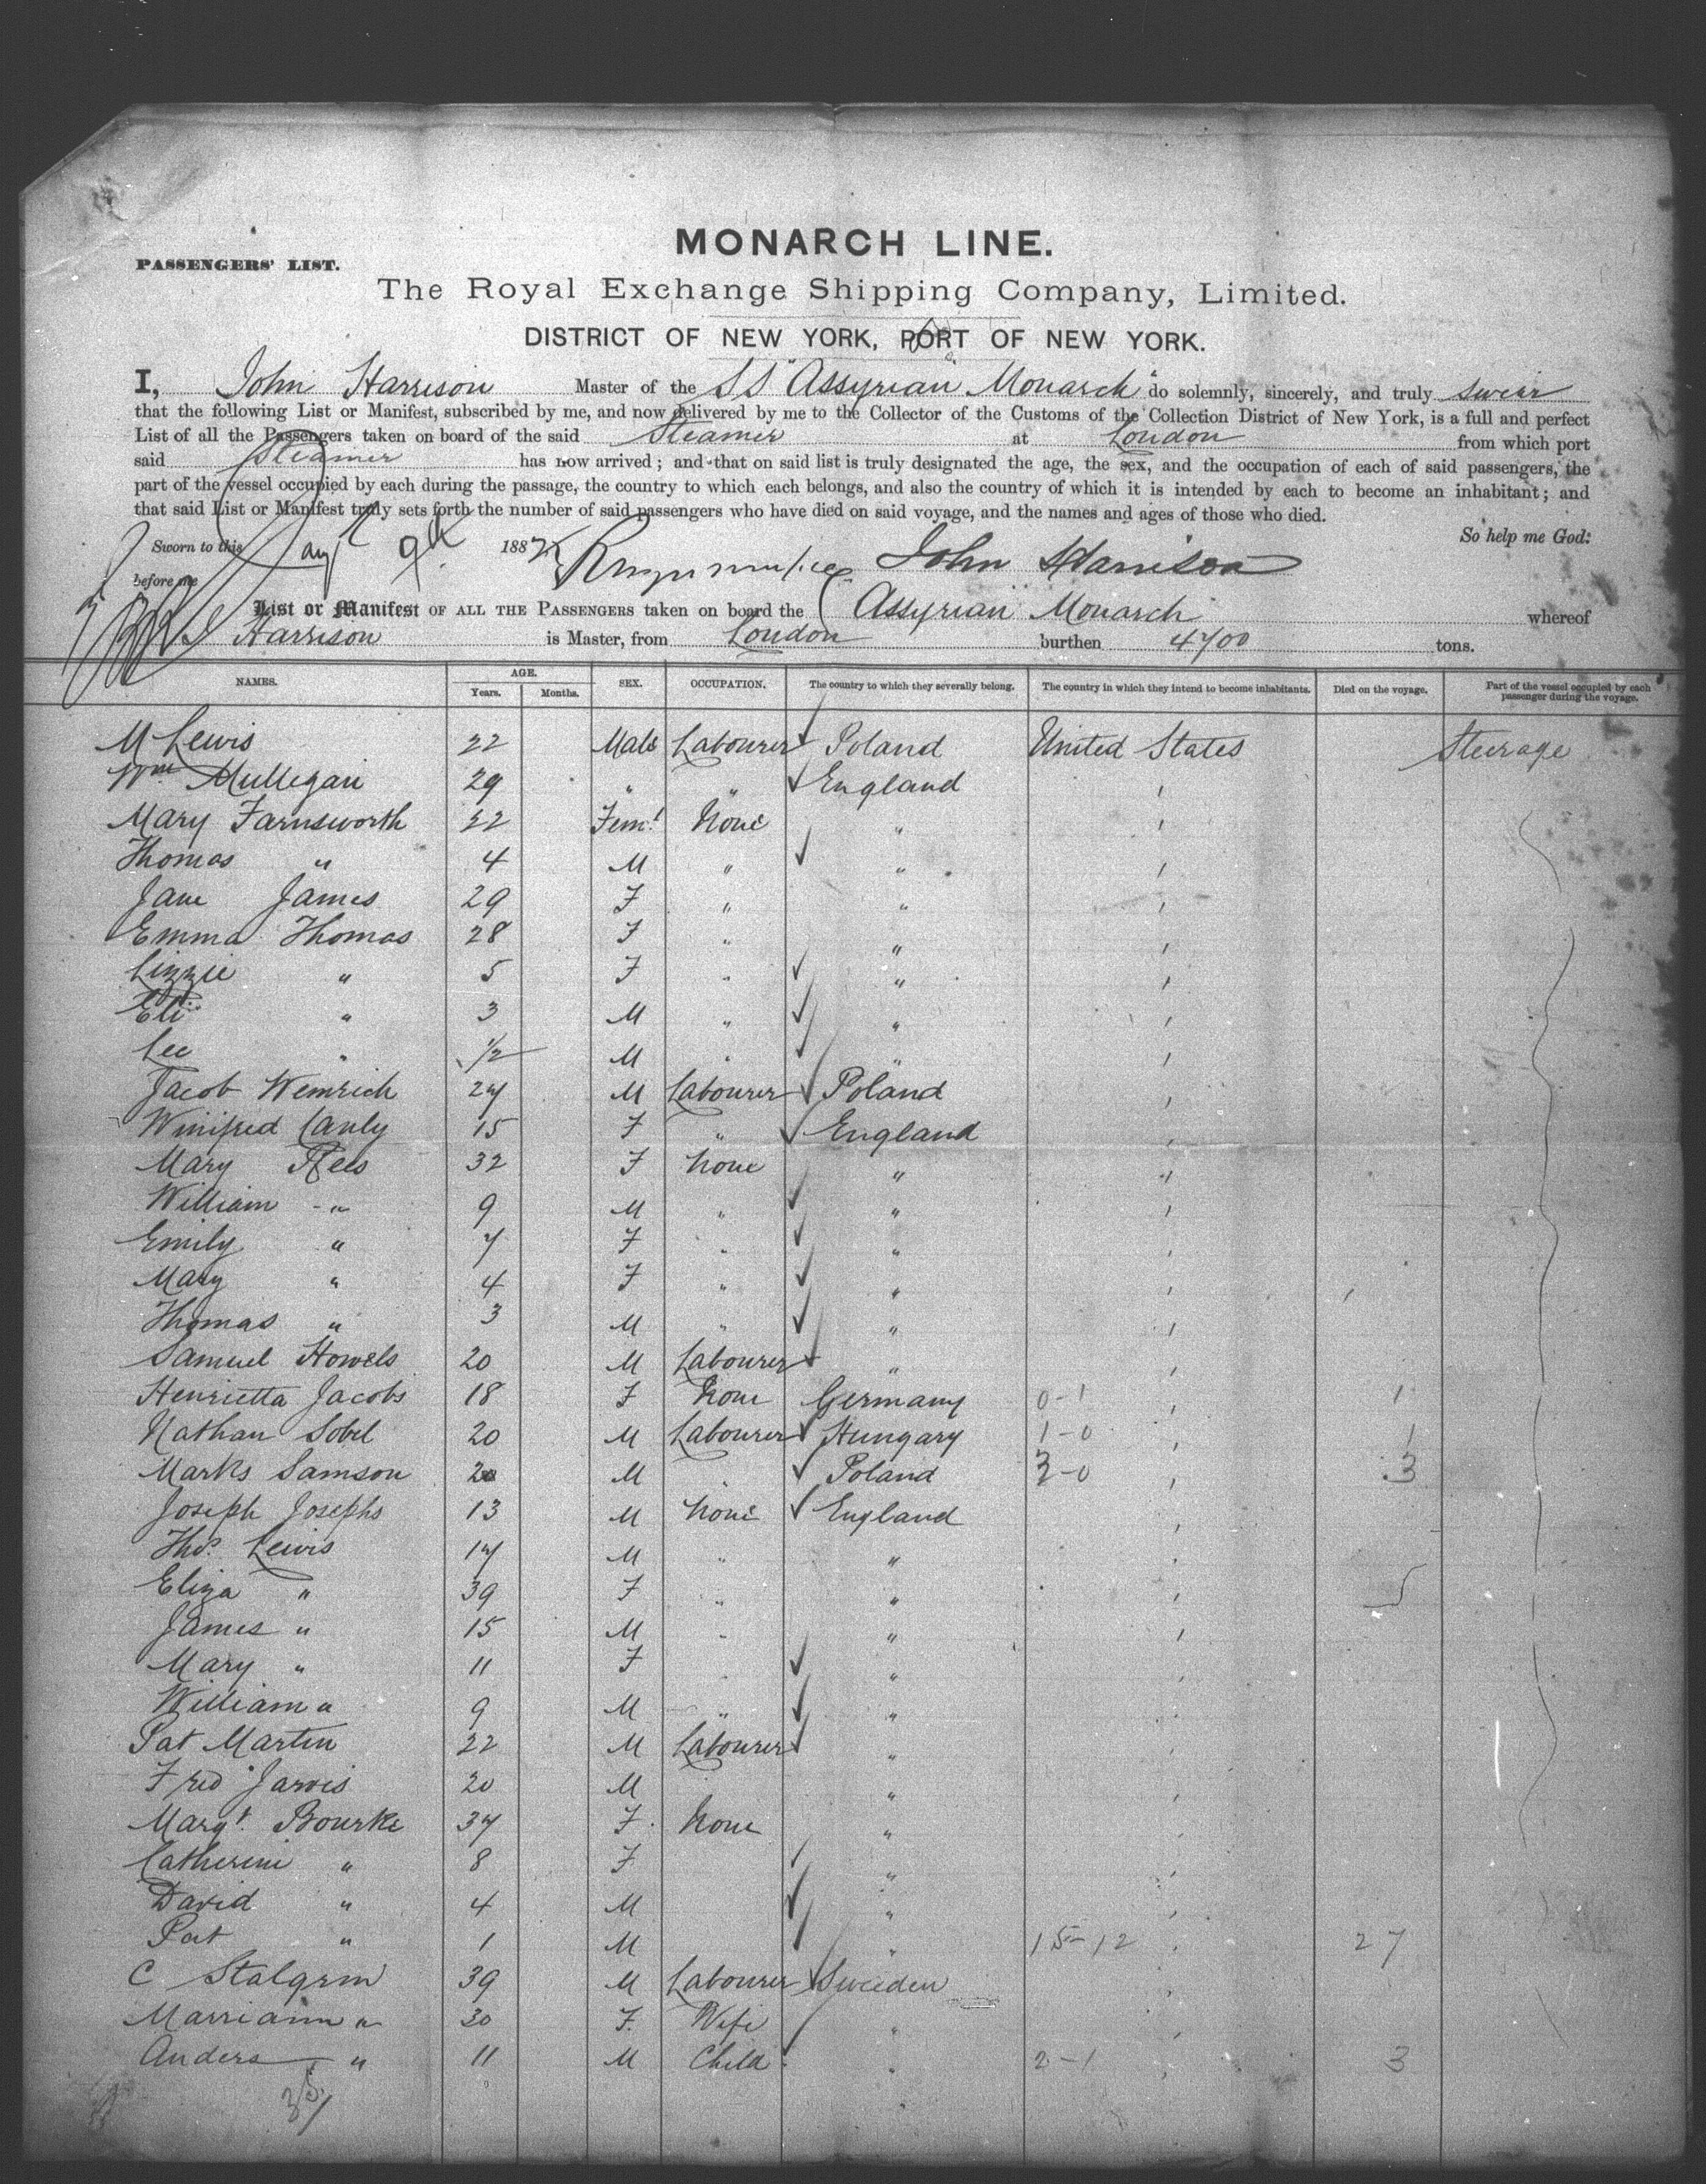 MONARCH LINE.
PASSENGERS' LIST.
The Royal Exchange Shipping Company, Limited.
DISTRICT OF NEW YORK, PORT OF NEW YORK.
I, John Harrison Master of the SS "Assyrian Monarch" do solemnly, sincerely, and truly swear
that the following List or Manifest, subscribed by me, and now delivered by me to the Collector of the Customs of the Collection District of New York, is a full and perfect
List of all the Passengers taken on board of the said Steamer at London from which port
said Steamer has now arrived; and that on said list is truly designated the age, the sex, and the occupation of each of said passengers, the
part of the vessel occupied by each during the passage, the country to which each belongs, and also the country of which it is intended by each to become an inhabitant; and
that said List or Manifest truly sets forth the number of said passengers who have died on said voyage, and the names and ages of those who died.
So help me God:
Sworn to this Aug 9th 1887 John Harrison
before me
List or Manifest OF ALL THE PASSENGERS taken on board the Assyrian Monarch whereof
J Harrison is Master, from London burthen 4700 tons.
NAMES. AGE. Years. Months. SEX. OCCUPATION. The country to which they severally belong. The country in which they intend to become inhabitants. Died on the voyage. Part of the vessel occupied by each passenger during the voyage.
M Lewis 22 Male Labourer Poland United States Steerage
Wm Mullegan 29 " " England "
Mary Farnsworth 22 Feml None " "
Thomas " 4 M " " "
Jane James 29 F " " "
Emma Thomas 28 F " " "
Lizzie " 5 F " " "
Eli " 3 M " " "
Lee " 1/2 M " " "
Jacob Wemrich 27 M Labourer Poland "
Winifred Canly 15 F " England "
Mary Rees 32 F None " "
William " 9 M " " "
Emily " 7 F " " "
Mary " 4 F " " "
Thomas " 3 M " " "
Samuel Howels 20 M Labourer " "
Henrietta Jacobs 18 F None Germany 0-1 " 1
Nathan Sobel 20 M Labourer Hungary 1-0 " 1
Marks Samson 20 M " Poland 3-0 " 3
Joseph Josephs 13 M None England "
Thos. Lewis 17 M " " "
Eliza " 39 F " " "
James " 15 M " " "
Mary " 11 F " " "
William " 9 M " " "
Pat Martin 22 M Labourer " "
Fred Jarvis 20 M " "
Margt. Bourke 37 F None " "
Catherine " 8 F " "
David " 4 M " "
Pat " 1 M " 15-12 " 27
C Stalgrm 39 M Labourer Sweeden "
Marriann " 30 F. Wife " "
Anders " 11 M Child " 2-1 " 3
35/